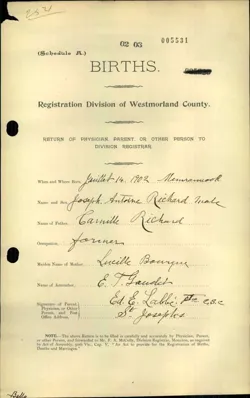 02 03
005531
(Schedule A.)
BIRTHS.
Registration Division of Westmorland County.
RETURN OF PHYSICIAN, PARENT, OR OTHER PERSON TO
DIVISION REGISTRAR.
When and Where Born, Juillet 14. 1902 Memramcook
Name and Sex, Joseph Antoine Richard male
Name of Father, Camille Richard
Occupation, farmer
Maiden Name of Mother, Lucille Bourque
Name of Accoucheur, E. T. Gaudet
Signature of Parent, Physician or Other Person, and Post Office Address. Ed. E. Labbé Ptre c.s.c.
St Josephs
NOTE.—The above Return is to be filled in carefully and accurately by Physician, Parent,
or other Person, and forwarded to
Division Registrar, Moncton, as required
by Act of Assembly,
"An Act to provide for the Registration of Births,
Deaths and Marriages."